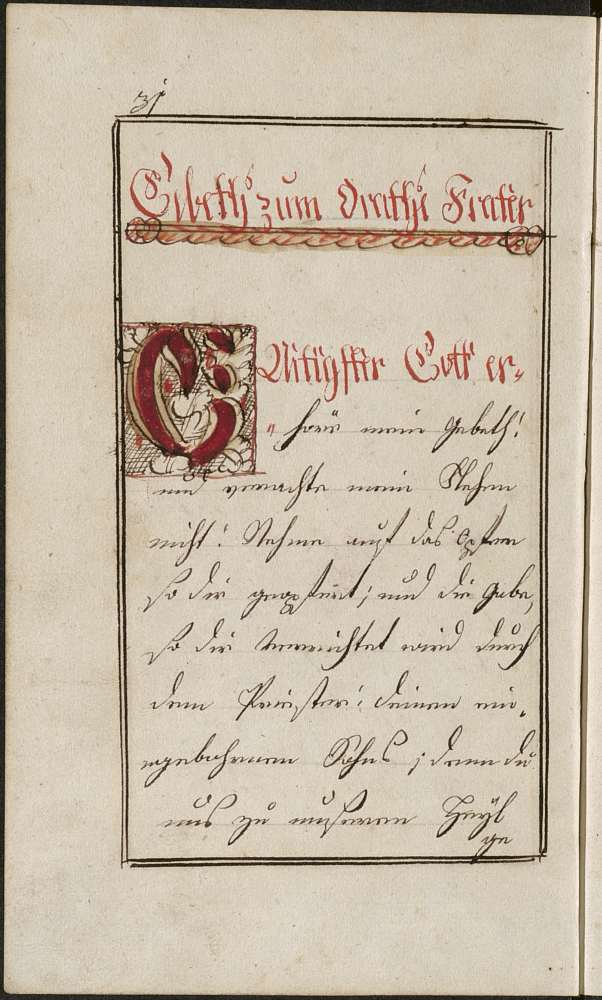 31
Gebeth zum Orathe Frater
GÜttigster Gott er-
höre mein Gebeth!
und verachte mein Flehen
nicht! Nehme auf das Opfer
so dir geopfert; und die Gabe,
so dir verrichtet wird durch
dem Priester: deinen ein-
ngebohrnen Sohns; denn du
uns zu unserem Heyl
ge